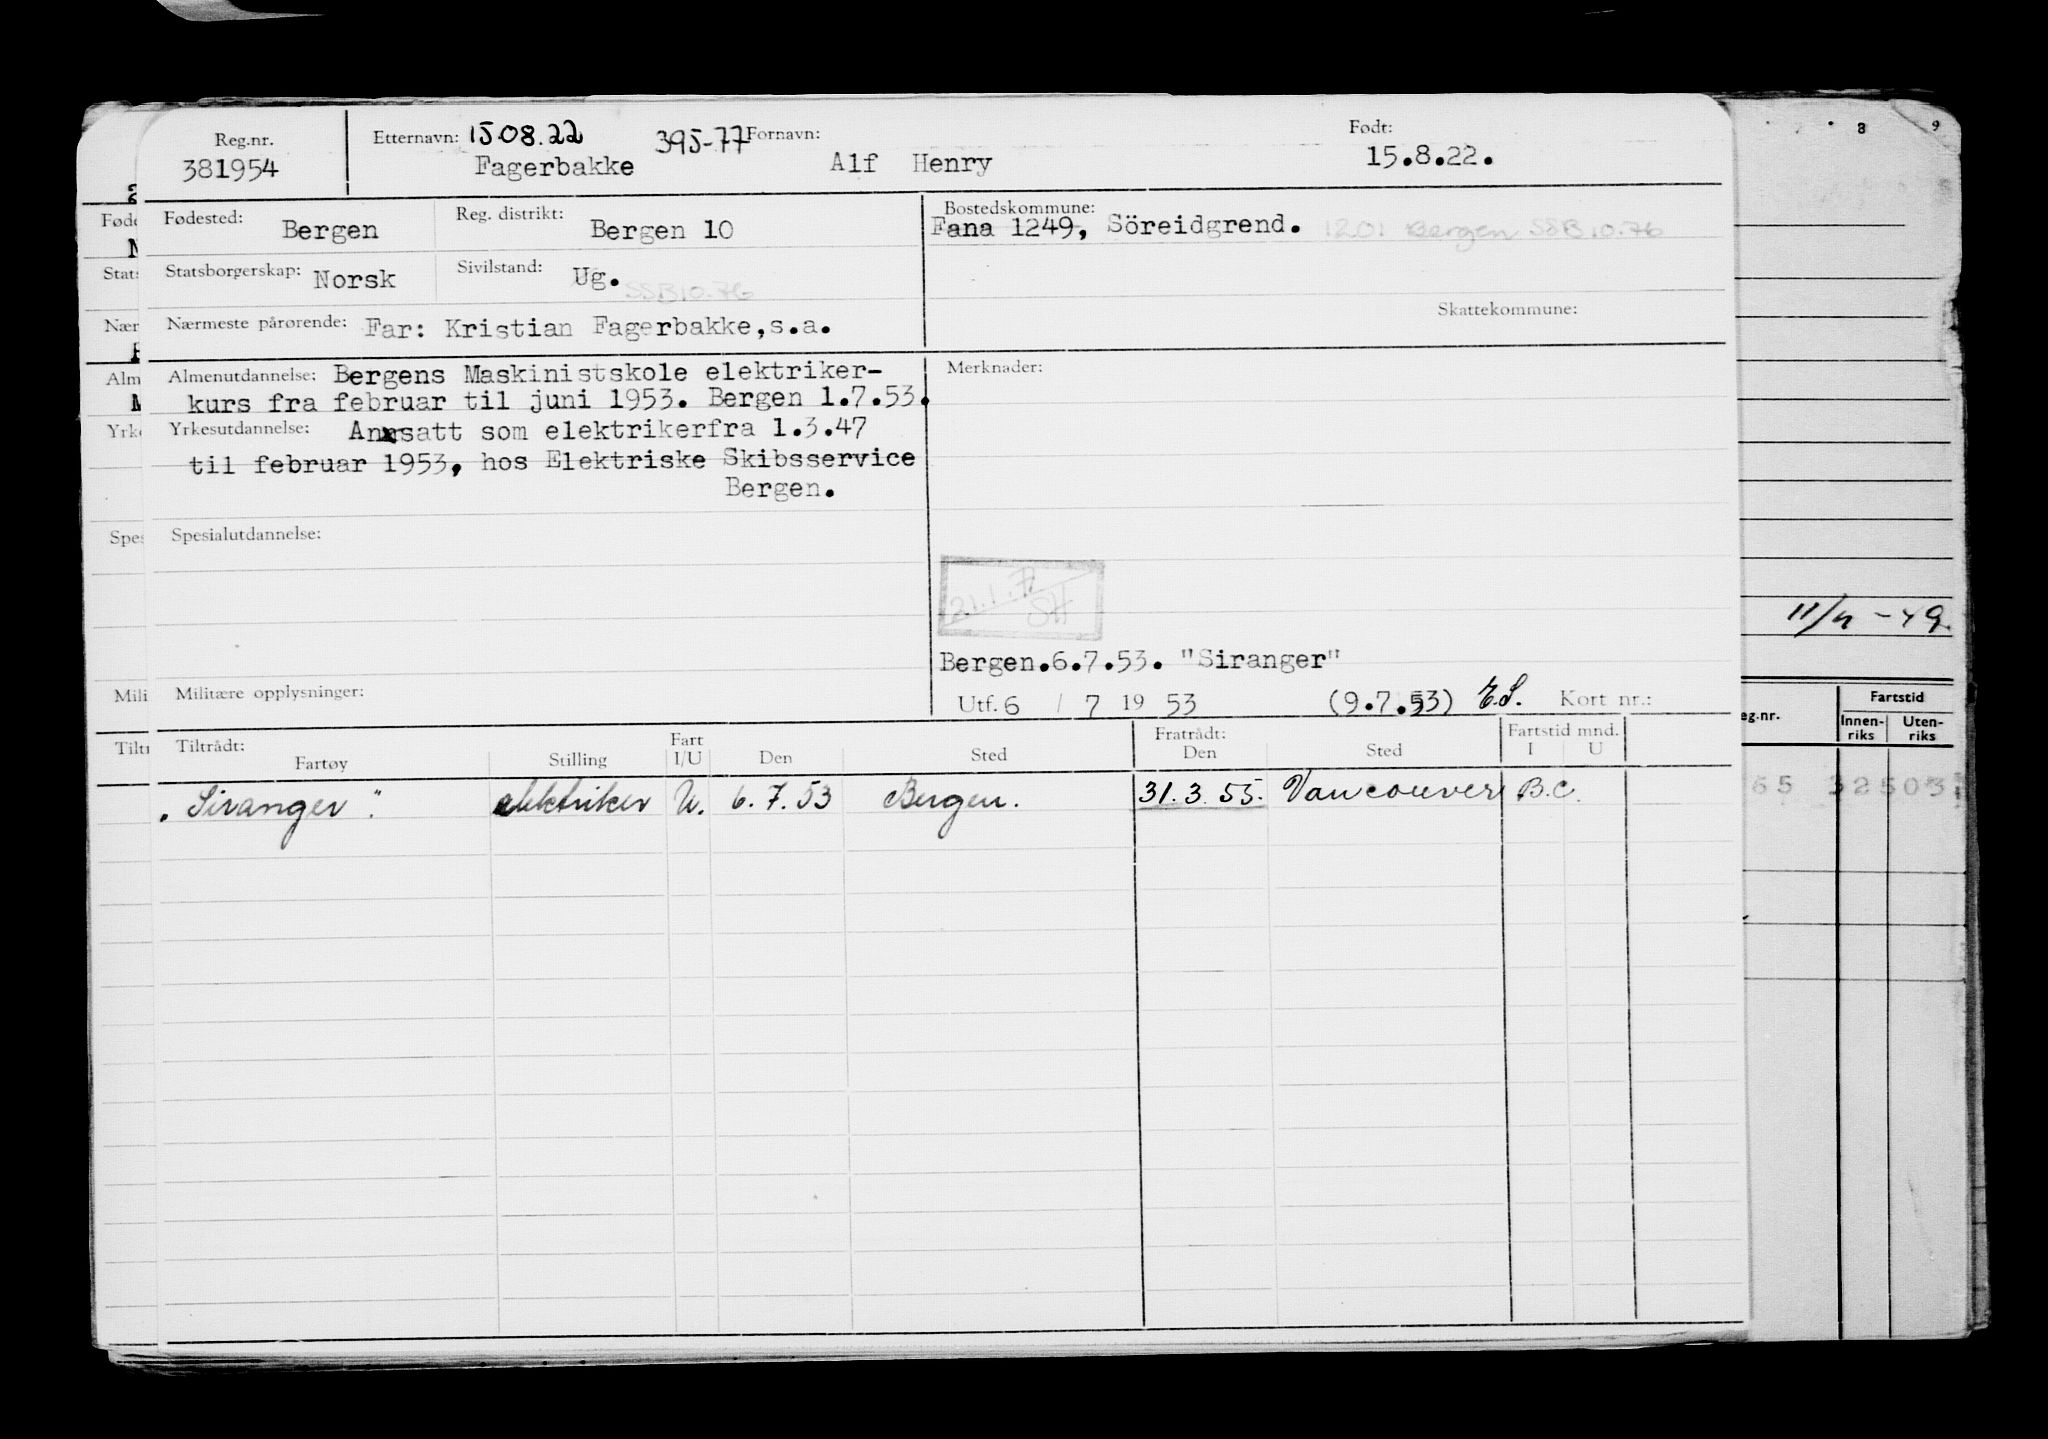 Reg.nr. Etternavn: 15 08.22 395-77 Fornavn: Født:
381954 Fagerbakke Alf Henry 15.8.22.
Fødested: Bergen Reg. distrikt: Bergen 10 Bostedskommune: Fana 1249, Söreidgrend. 1201 Bergen SSB 10.76
Statsborgerskap: Norsk Sivilstand: Ug. SSB 10.76
Skattekommune:
Nærmeste pårørende: Far: Kristian Fagerbakke,s.a.
Almenutdannelse: Bergens Maskinistskole elektriker-
kurs fra februar til juni 1953. Bergen 1.7.53.
Merknader:
Yrkesutdannelse: Ansatt som elektrikerfra 1.3.47
til februar 1953, hos Elektriske Skibsservice
Bergen.
Spesialutdannelse:
21.1.77
SH
Bergen.6.7.53. "Siranger"
Militære opplysninger:
Utf. 6 / 7 19 53 (9.7.53) E.S. Kort nr.:
Tiltrådt: Fratrådt: Fartstid mnd.
Fartøy Stilling Fart I/U Den Sted Den Sted I U
"Siranger". elektriker U. 6.7.53 Bergen. 31.3.55. Vancouver B.C.
8 9
11/4 -49.
eg.nr. Fartstid
Innen-riks Uten-riks
65 32503